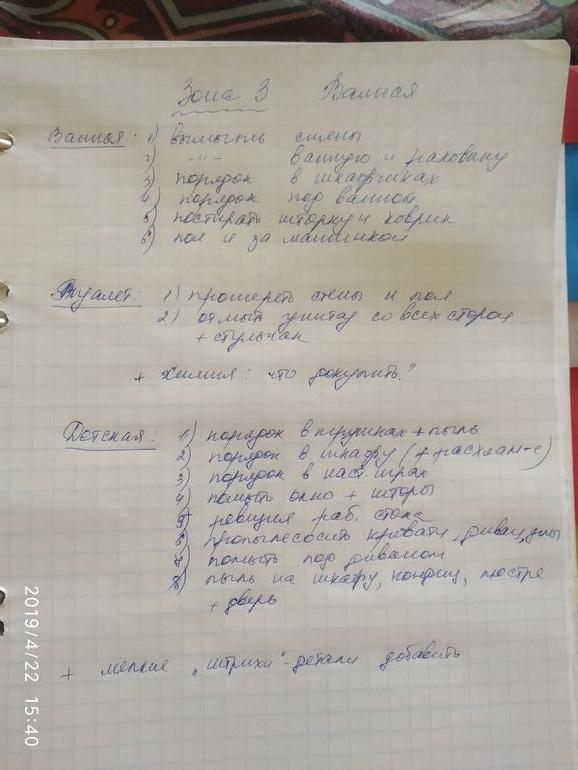 Зона 3 Ванная
Ванная: 1) вымыть стены
2) -"- ванную и раковину
3) порядок в шкафчиках
4) порядок под ванной
5) постирать шторку и коврик
6) пол и за машинкой
Туалет: 1) протереть стены и пол
2) отмыть унитаз со всех сторон
+ стульчак
+ Химия: что докупить?
Детская: 1) порядок в игрушках + пыль
2) порядок в шкафу (+ расхлам-е)
3) порядок в наст. играх
4) помыть окно + шторы
5) ревизия раб. стола
6) пропылесосить кровати, диван,
7) помыть под диваном
8) пыль на шкафу, кондиц, люстре
+ дверь
+ мелкие "штрихи"-детали добавить
2019/4/22 15:40